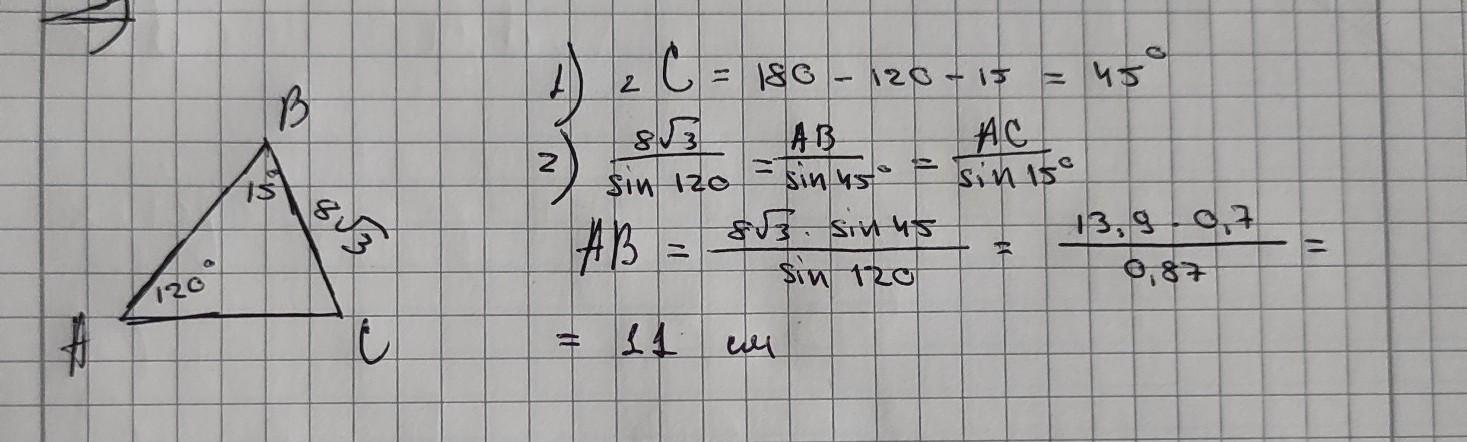 B
15°
8√3
120°
A
C
1) ∠ C = 180 - 120 - 15 = 45°
2) 8√3 / sin 120 = AB / sin 45° = AC / sin 15°
AB = 8√3 · sin 45 / sin 120 = 13,9 · 0,7 / 0,87 =
= 11 см